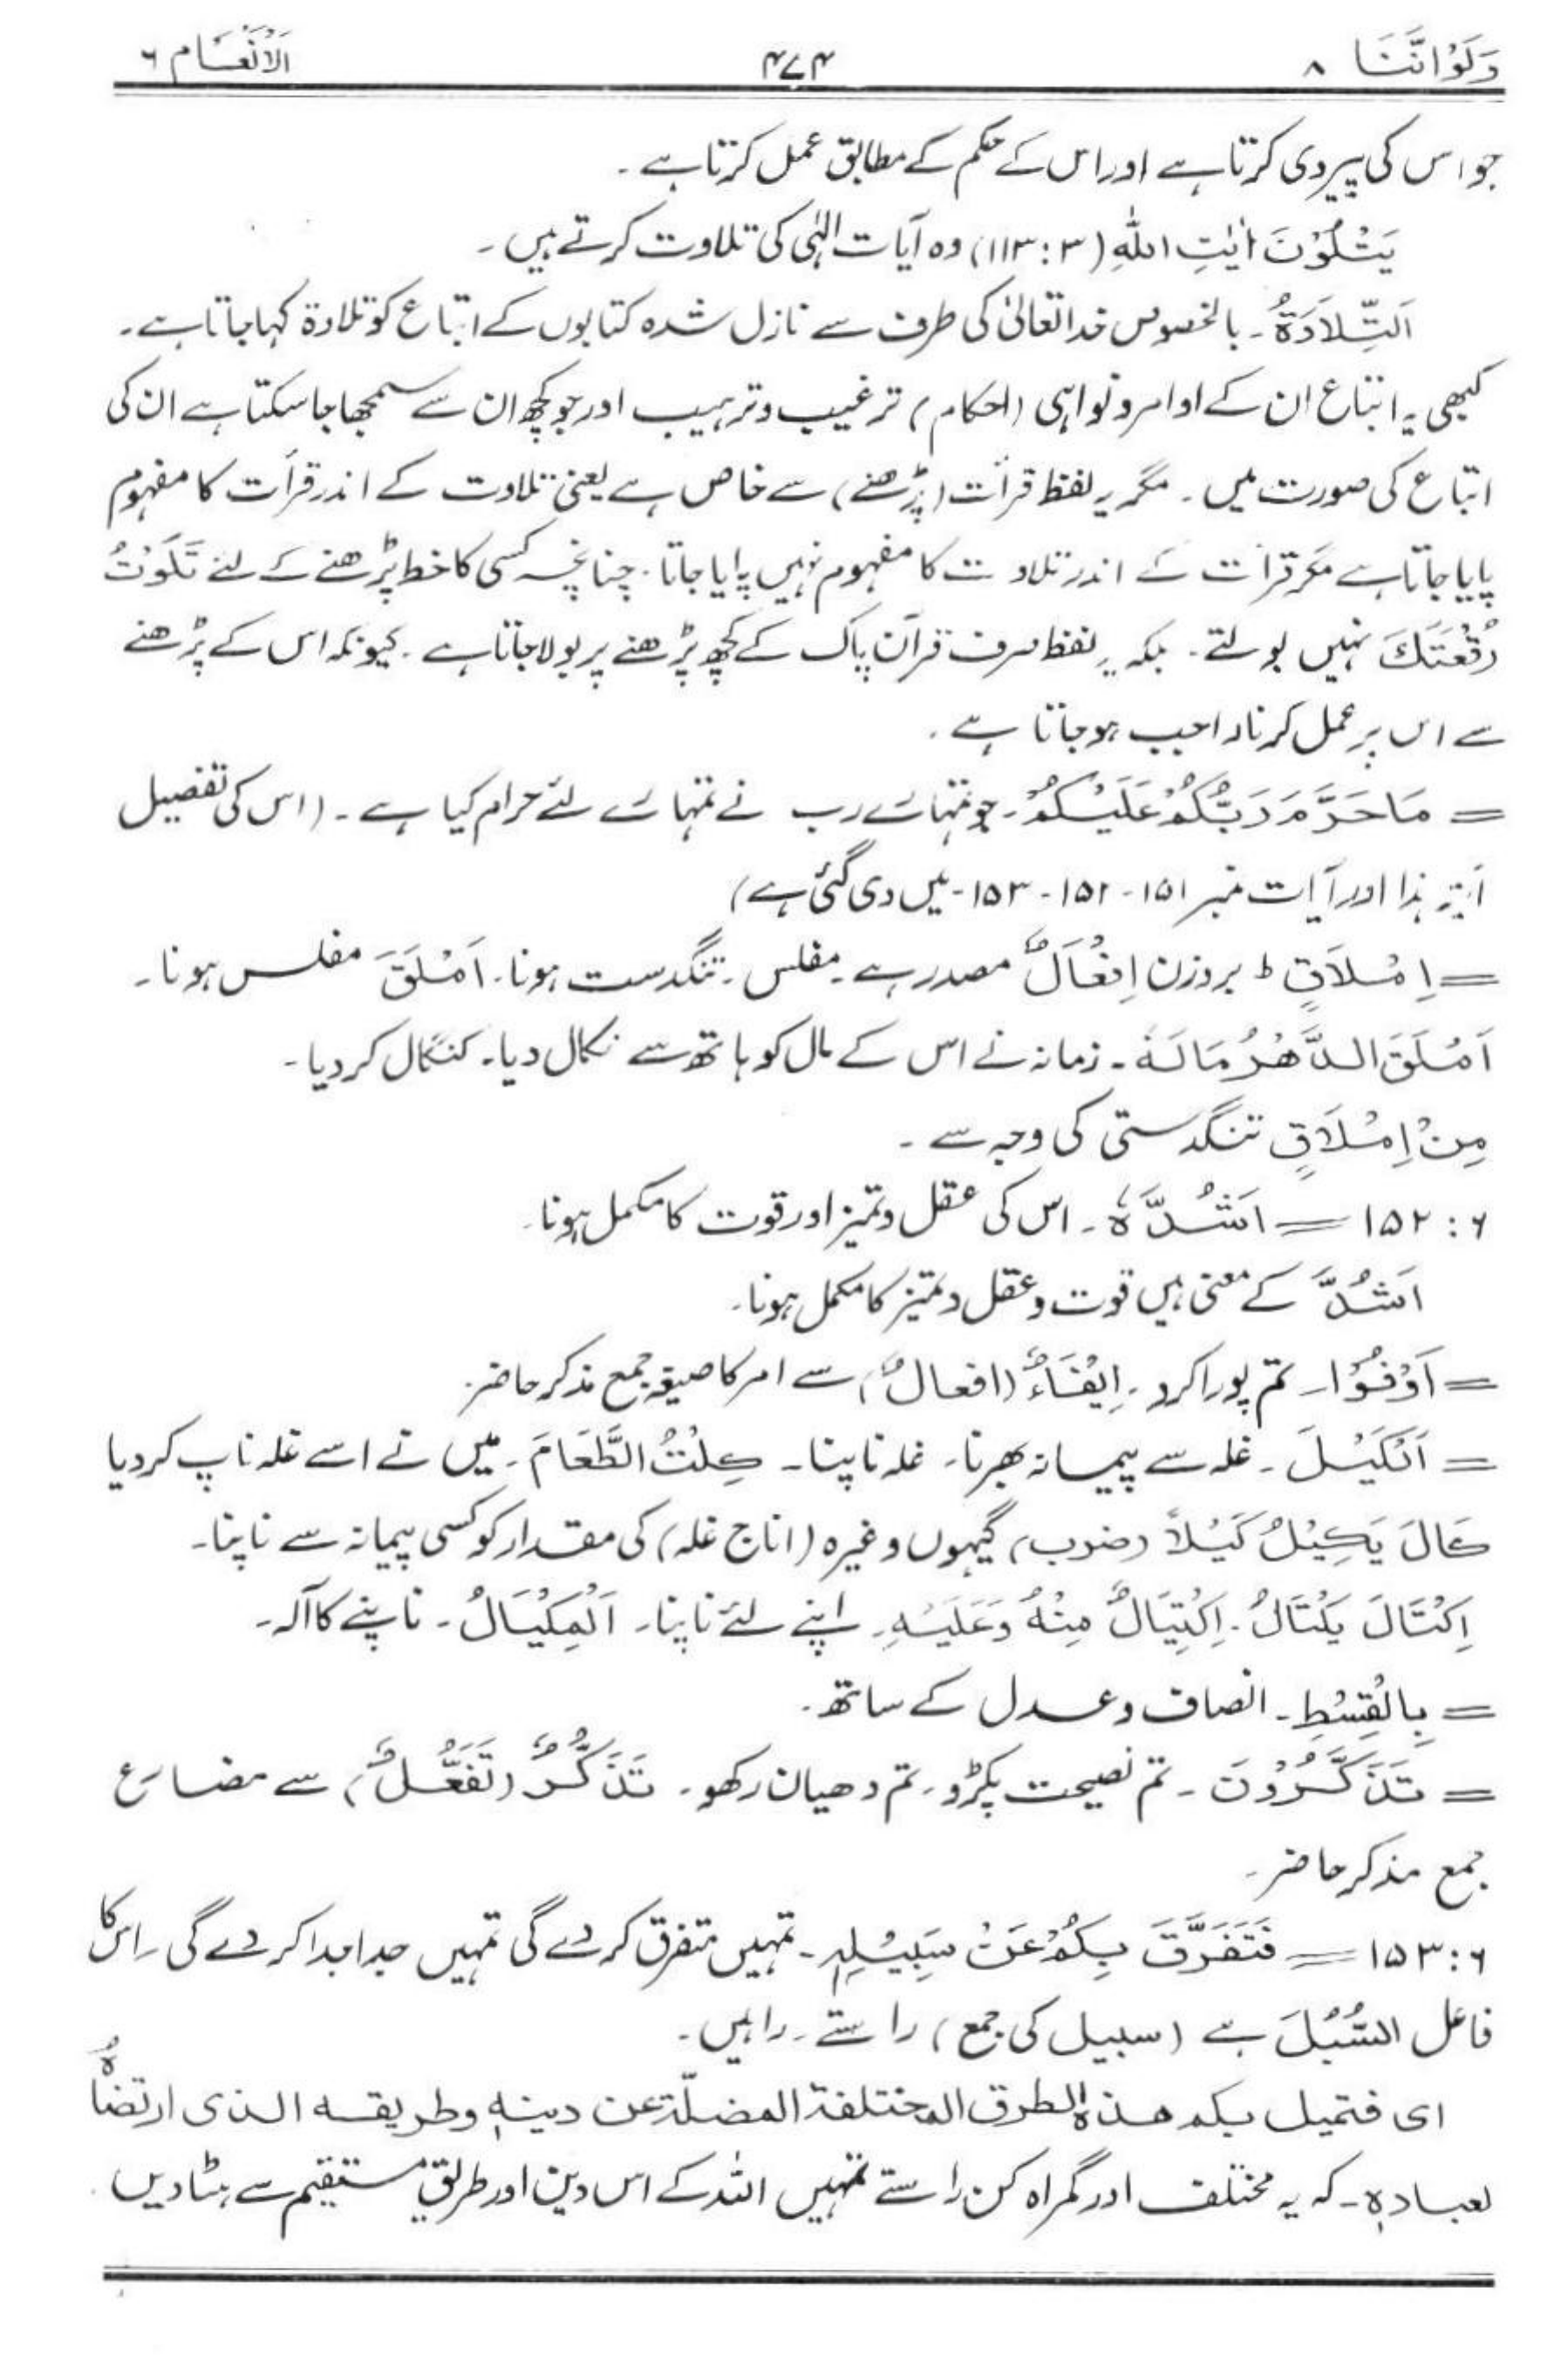 وَلَوْاَنَّنَا ۸ ۴۷۴ اَلْاَنْعَام ۶
جو اس کی پیروی کرتا ہے اور اس کے حکم کے مطابق عمل کرتا ہے ۔
يَتْلُوْنَ اٰيٰتِ اللّٰهِ (۳ : ۱۱۳) وہ آیات الٰہی کی تلاوت کرتے ہیں ۔
اَلتِّلَاوَةُ ۔ بالخصوص خدا تعالیٰ کی طرف سے نازل شدہ کتابوں کے اتباع کو تلاوۃ کہا جاتا ہے ۔
کبھی یہ اتباع ان کے اوامر و نواہی (احکام) ترغیب و ترہیب اور جو کچھ ان سے سمجھا جا سکتا ہے ان کی
اتباع کی صورت میں ۔ مگر یہ لفظ قرأت (پڑھنے) سے خاص ہے یعنی تلاوت کے اندر قرأت کا مفہوم
پایا جاتا ہے مگر قرأت کے اندر تلاوت کا مفہوم نہیں پایا جاتا ۔ چنانچہ کسی کا خط پڑھنے کے لئے تَلَوْتُ
رُقْعَتَكَ نہیں بولتے ۔ بلکہ یہ لفظ صرف قرآن پاک کے کچھ پڑھنے پر بولا جاتا ہے ۔ کیونکہ اس کے پڑھنے
سے اس پر عمل کرنا واجب ہو جاتا ہے ۔
= مَا حَرَّمَ رَبُّكُمْ عَلَيْكُمْ ۔ جو تمہارے رب نے تمہارے لئے حرام کیا ہے ۔ (اس کی تفصیل
آیۃ ہذا اور آیات نمبر ۱۵۱ - ۱۵۲ - ۱۵۳ - میں دی گئی ہے)
= اِمْلَاقٍ ط بروزن اِفْعَالٌ مصدر ہے ۔ مفلس ۔ تنگدست ہونا ۔ اَمْلَقَ مفلس ہونا ۔
اَمْلَقَ الدَّهْرُ مَالَهٗ ۔ زمانہ نے اس کے مال کو ہاتھ سے نکال دیا ۔ کنگال کر دیا ۔
مِنْ اِمْلَاقٍ تنگدستی کی وجہ سے ۔
۶ : ۱۵۲ = اَشُدَّهٗ ۔ اس کی عقل و تمیز اور قوت کا مکمل ہونا ۔
اَشُدَّ کے معنی ہیں قوت و عقل و تمیز کا مکمل ہونا ۔
= اَوْفُوْا ۔ تم پورا کرو ۔ اِيْفَاءٌ (افعالٌ) سے امر کا صیغہ جمع مذکر حاضر ۔
= اَلْكَيْلَ ۔ غلہ سے پیمانہ بھرنا ۔ غلہ ناپنا ۔ كِلْتُ الطَّعَامَ ۔ میں نے اسے غلہ ناپ کر دیا
كَالَ يَكِيْلُ كَيْلًا (ضرب) گیہوں وغیرہ (اناج غلہ) کی مقدار کو کسی پیمانہ سے ناپنا ۔
اِكْتَالَ يَكْتَالُ ۔ اِكْتِيَالٌ مِنْهُ وَعَلَيْهِ ۔ اپنے لئے ناپنا ۔ اَلْمِكْيَالُ ۔ ناپنے کا آلہ ۔
= بِالْقِسْطِ ۔ انصاف و عدل کے ساتھ ۔
= تَذَكَّرُوْنَ ۔ تم نصیحت پکڑو ۔ تم دھیان رکھو ۔ تَذَكُّرٌ (تَفَعُّلٌ) سے مضارع
جمع مذکر حاضر ۔
۶ : ۱۵۳ = فَتَفَرَّقَ بِكُمْ عَنْ سَبِيْلِهٖ ۔ تمہیں متفرق کر دے گی تمہیں جدا جدا کر دے گی ۔ اس کا
فاعل السُّبُلَ ہے (سبیل کی جمع) راستے ۔ راہیں ۔
ای فتمیل بکم ھذہ الطرق المختلفۃ المضلّۃ عن دینہٖ وطریقہ الذی ارتضاہُ
لعبادہٖ ۔ کہ یہ مختلف اور گمراہ کن راستے تمہیں اللہ کے اس دین اور طریقِ مستقیم سے ہٹا دیں ۔